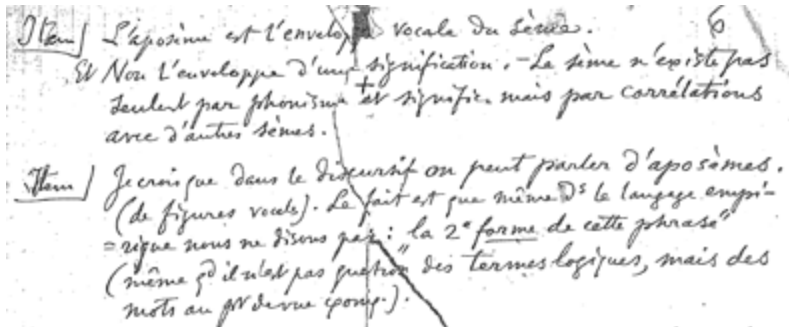 Item] L'aposème est l'enveloppe vocale du sème. 6
Et Non l'enveloppe d'une signification. - Le sème n'existe pas
seulemt par phonisme et signific. mais par corrélations
avec d'autres sèmes.
Item] Je crois que dans le discursif on peut parler d'aposèmes.
(de figures vocales). Le fait est que même Ds le langage empi-
=rique nous ne disons pas : la 2e forme de cette phrase"
(même qd il n'est pas question" des termes logiques, mais des
mots au pt de vue